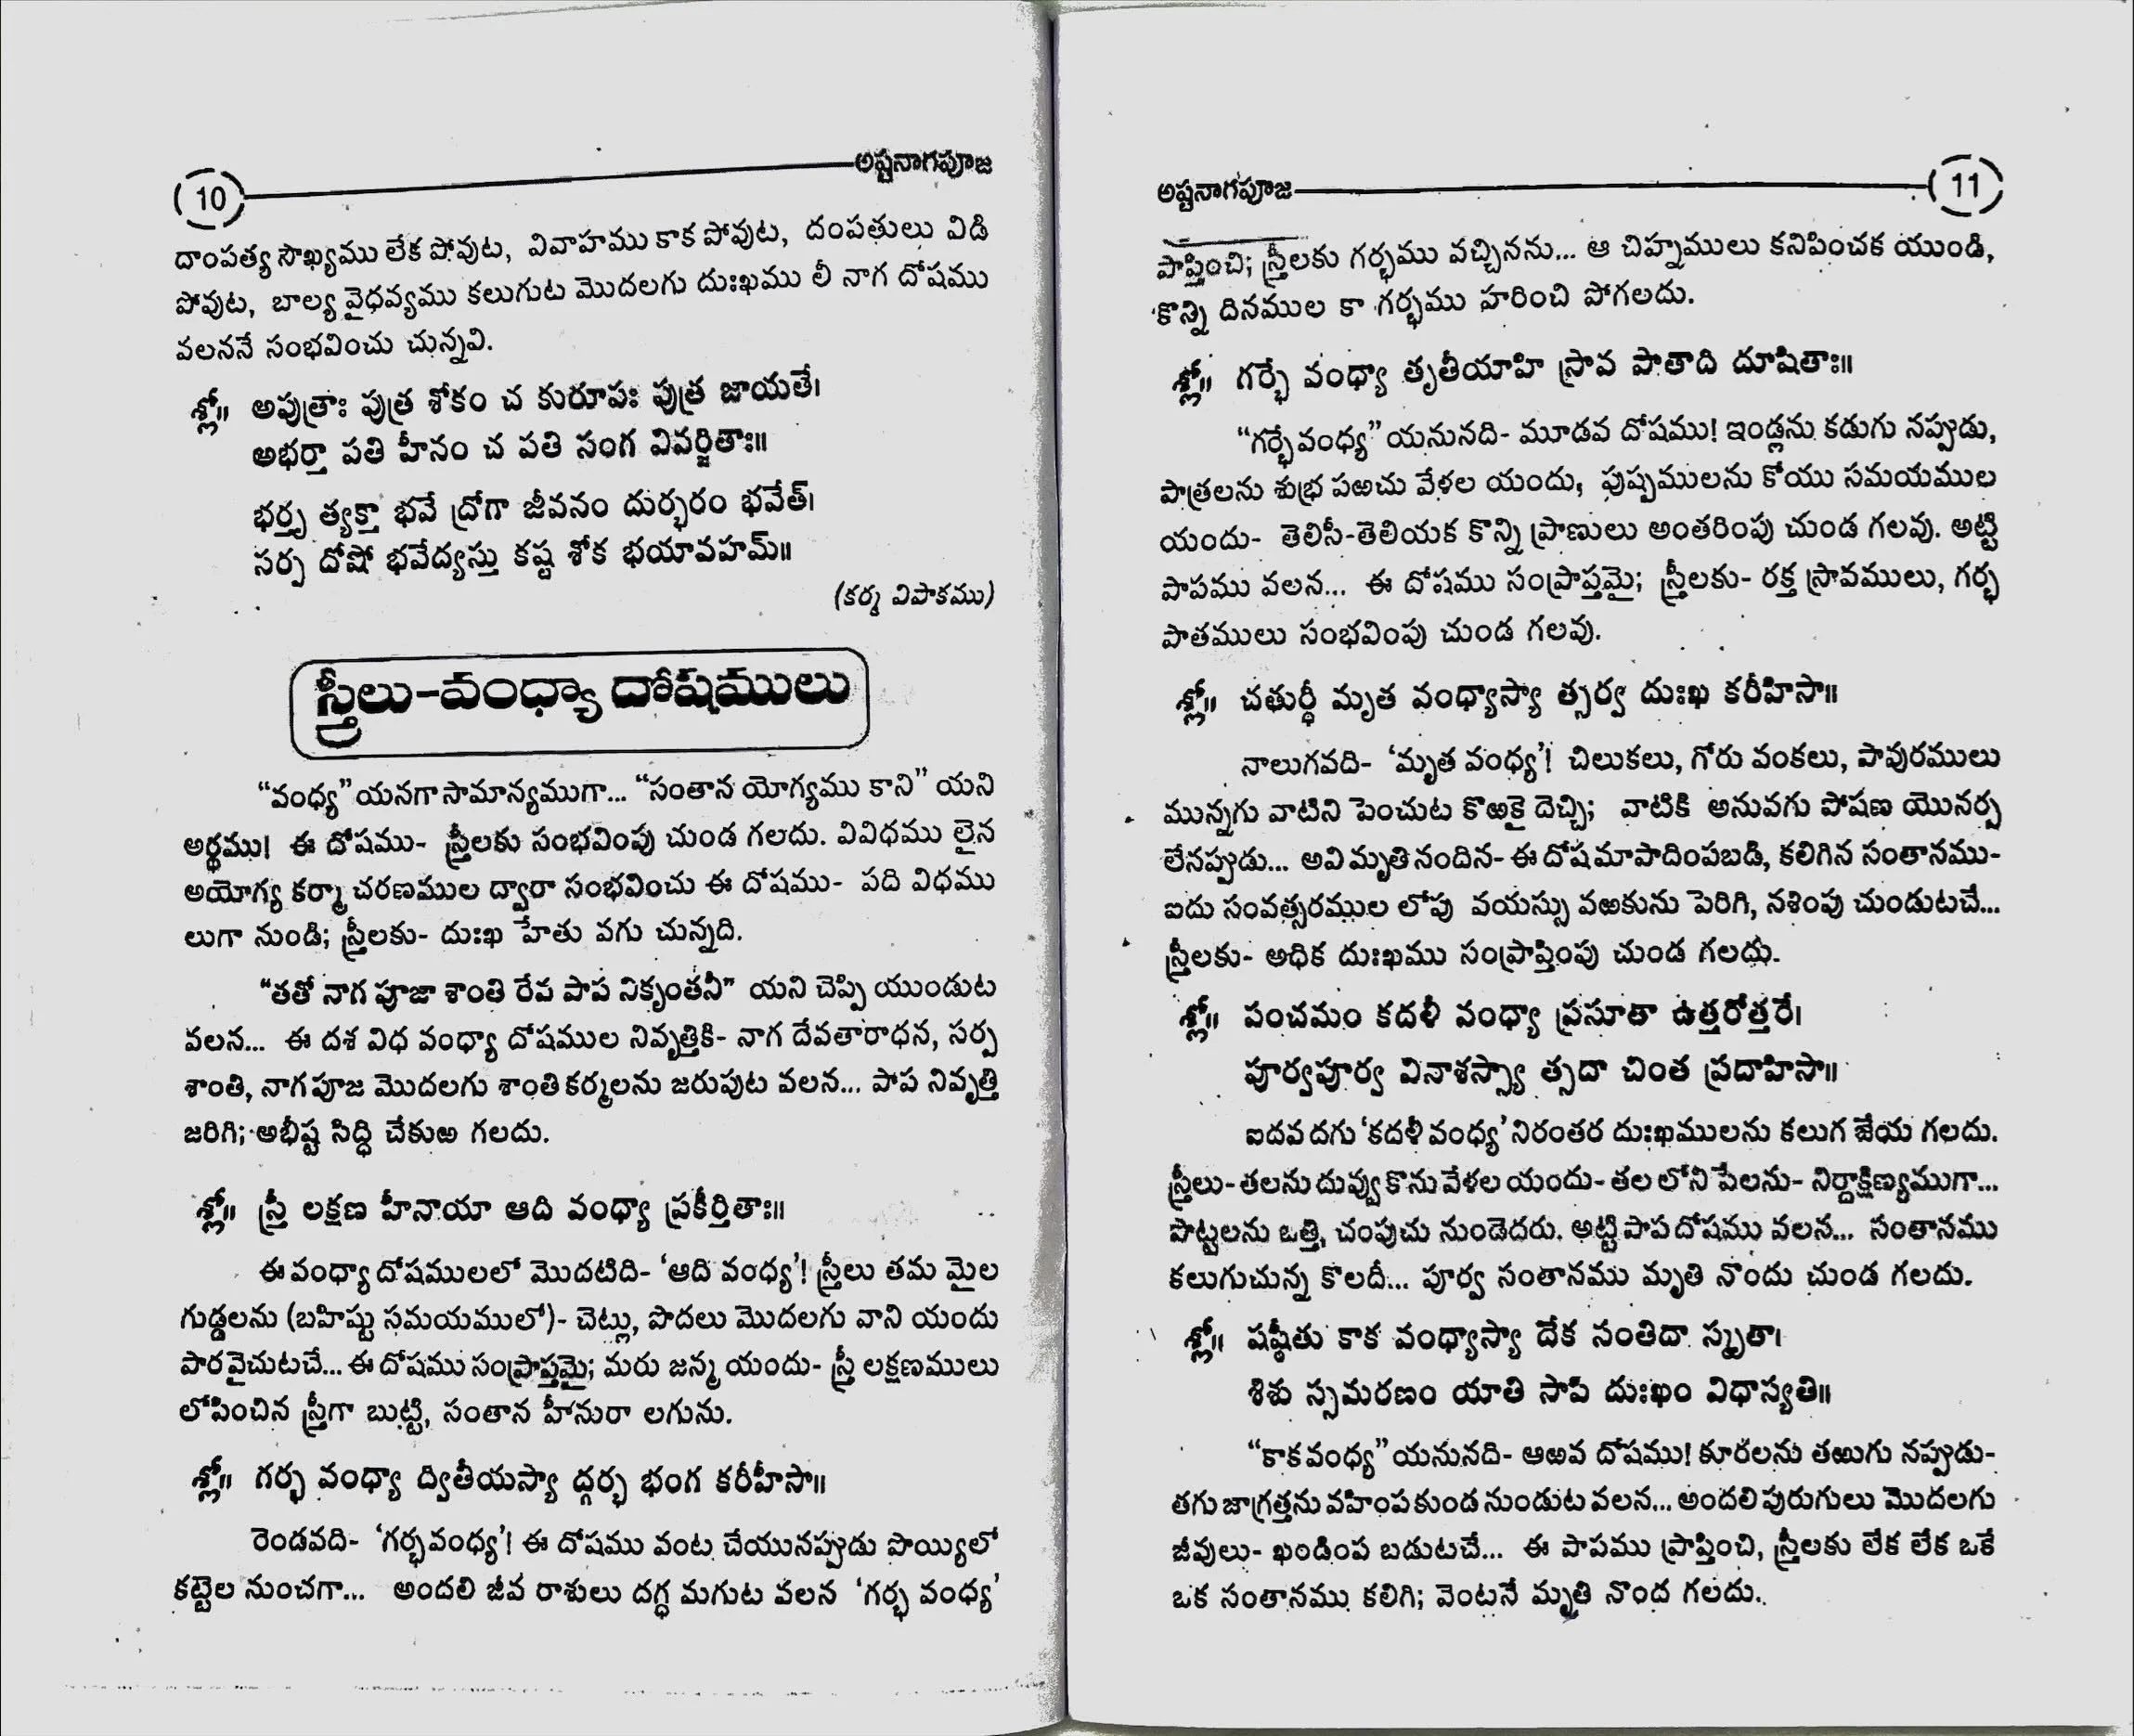 10 అష్టనాగపూజ
దాంపత్య సౌఖ్యము లేక పోవుట, వివాహము కాక పోవుట, దంపతులు విడి
పోవుట, బాల్య వైధవ్యము కలుగుట మొదలగు దుఃఖము లీ నాగ దోషము
వలననే సంభవించు చున్నవి.
శ్లో॥ అపుత్రాః పుత్ర శోకం చ కురూపః పుత్ర జాయతే।
అభర్తా పతి హీనం చ పతి సంగ వివర్జితాః॥
భర్తృ త్యక్తా భవే ద్రోగా జీవనం దుర్భరం భవేత్।
సర్ప దోషో భవేద్యస్తు కష్ట శోక భయావహమ్॥
(కర్మ విపాకము)
స్త్రీలు-వంధ్యా దోషములు
“వంధ్య” యనగా సామాన్యముగా... “సంతాన యోగ్యము కాని” యని
అర్థము! ఈ దోషము- స్త్రీలకు సంభవింపు చుండ గలదు. వివిధము లైన
అయోగ్య కర్మా చరణముల ద్వారా సంభవించు ఈ దోషము- పది విధము
లుగా నుండి; స్త్రీలకు- దుఃఖ హేతు వగు చున్నది.
“తతో నాగ పూజా శాంతి రేవ పాప నికృంతనీ” యని చెప్పి యుండుట
వలన... ఈ దశ విధ వంధ్యా దోషముల నివృత్తికి- నాగ దేవతారాధన, సర్ప
శాంతి, నాగ పూజ మొదలగు శాంతి కర్మలను జరుపుట వలన... పాప నివృత్తి
జరిగి; అభీష్ట సిద్ధి చేకుఱ గలదు.
శ్లో॥ స్త్రీ లక్షణ హీనాయా ఆది వంధ్యా ప్రకీర్తితాః॥
ఈ వంధ్యా దోషములలో మొదటిది- ‘ఆది వంధ్య’! స్త్రీలు తమ మైల
గుడ్డలను (బహిష్టు సమయములో)- చెట్లు, పొదలు మొదలగు వాని యందు
పారవైచుటచే... ఈ దోషము సంప్రాప్తమై; మరు జన్మ యందు- స్త్రీ లక్షణములు
లోపించిన స్త్రీగా బుట్టి, సంతాన హీనురా లగును.
శ్లో॥ గర్భ వంధ్యా ద్వితీయస్యా ద్గర్భ భంగ కరీహీసా॥
రెండవది- ‘గర్భవంధ్య’! ఈ దోషము వంట చేయునప్పుడు పొయ్యిలో
కట్టెల నుంచగా... అందలి జీవ రాశులు దగ్ధ మగుట వలన ‘గర్భ వంధ్య’
అష్టనాగపూజ 11
ప్రాప్తించి; స్త్రీలకు గర్భము వచ్చినను... ఆ చిహ్నములు కనిపించక యుండి,
కొన్ని దినముల కా గర్భము హరించి పోగలదు.
శ్లో॥ గర్భే వంధ్యా తృతీయాహి స్రావ పాతాది దూషితాః॥
“గర్భేవంధ్య” యనునది- మూడవ దోషము! ఇండ్లను కడుగు నప్పుడు,
పాత్రలను శుభ్ర పఱచు వేళల యందు, పుష్పములను కోయు సమయముల
యందు- తెలిసీ-తెలియక కొన్ని ప్రాణులు అంతరింపు చుండ గలవు. అట్టి
పాపము వలన... ఈ దోషము సంప్రాప్తమై; స్త్రీలకు- రక్త స్రావములు, గర్భ
పాతములు సంభవింపు చుండ గలవు.
శ్లో॥ చతుర్థీ మృత వంధ్యాస్యా త్సర్వ దుఃఖ కరీహిసా॥
నాలుగవది- ‘మృత వంధ్య’! చిలుకలు, గోరు వంకలు, పావురములు
మున్నగు వాటిని పెంచుట కొఱకై దెచ్చి; వాటికి అనువగు పోషణ యొనర్ప
లేనప్పుడు... అవి మృతి నందిన- ఈ దోష మాపాదింపబడి, కలిగిన సంతానము-
ఐదు సంవత్సరముల లోపు వయస్సు వఱకును పెరిగి, నశింపు చుండుటచే...
స్త్రీలకు- అధిక దుఃఖము సంప్రాప్తింపు చుండ గలదు.
శ్లో॥ పంచమం కదళీ వంధ్యా ప్రసూతా ఉత్తరోత్తరే।
పూర్వపూర్వ వినాశస్స్యా త్సదా చింత ప్రదాహిసా॥
ఐదవ దగు ‘కదళీ వంధ్య’ నిరంతర దుఃఖములను కలుగ జేయ గలదు.
స్త్రీలు- తలను దువ్వు కొను వేళల యందు- తల లోని పేలను- నిర్దాక్షిణ్యముగా...
పొట్టలను ఒత్తి, చంపుచు నుండెదరు. అట్టి పాప దోషము వలన... సంతానము
కలుగుచున్న కొలదీ... పూర్వ సంతానము మృతి నొందు చుండ గలదు.
శ్లో॥ షష్ఠీతు కాక వంధ్యాస్యా దేక సంతిదా స్మృతా।
శిశు స్సమరణం యాతి సాపి దుఃఖం విధాస్యతి॥
“కాకవంధ్య” యనునది- ఆఱవ దోషము! కూరలను తఱుగు నప్పుడు-
తగు జాగ్రత్తను వహింపకుండ నుండుట వలన... అందలి పురుగులు మొదలగు
జీవులు- ఖండింప బడుటచే... ఈ పాపము ప్రాప్తించి, స్త్రీలకు లేక లేక ఒకే
ఒక సంతానము కలిగి; వెంటనే మృతి నొంద గలదు.